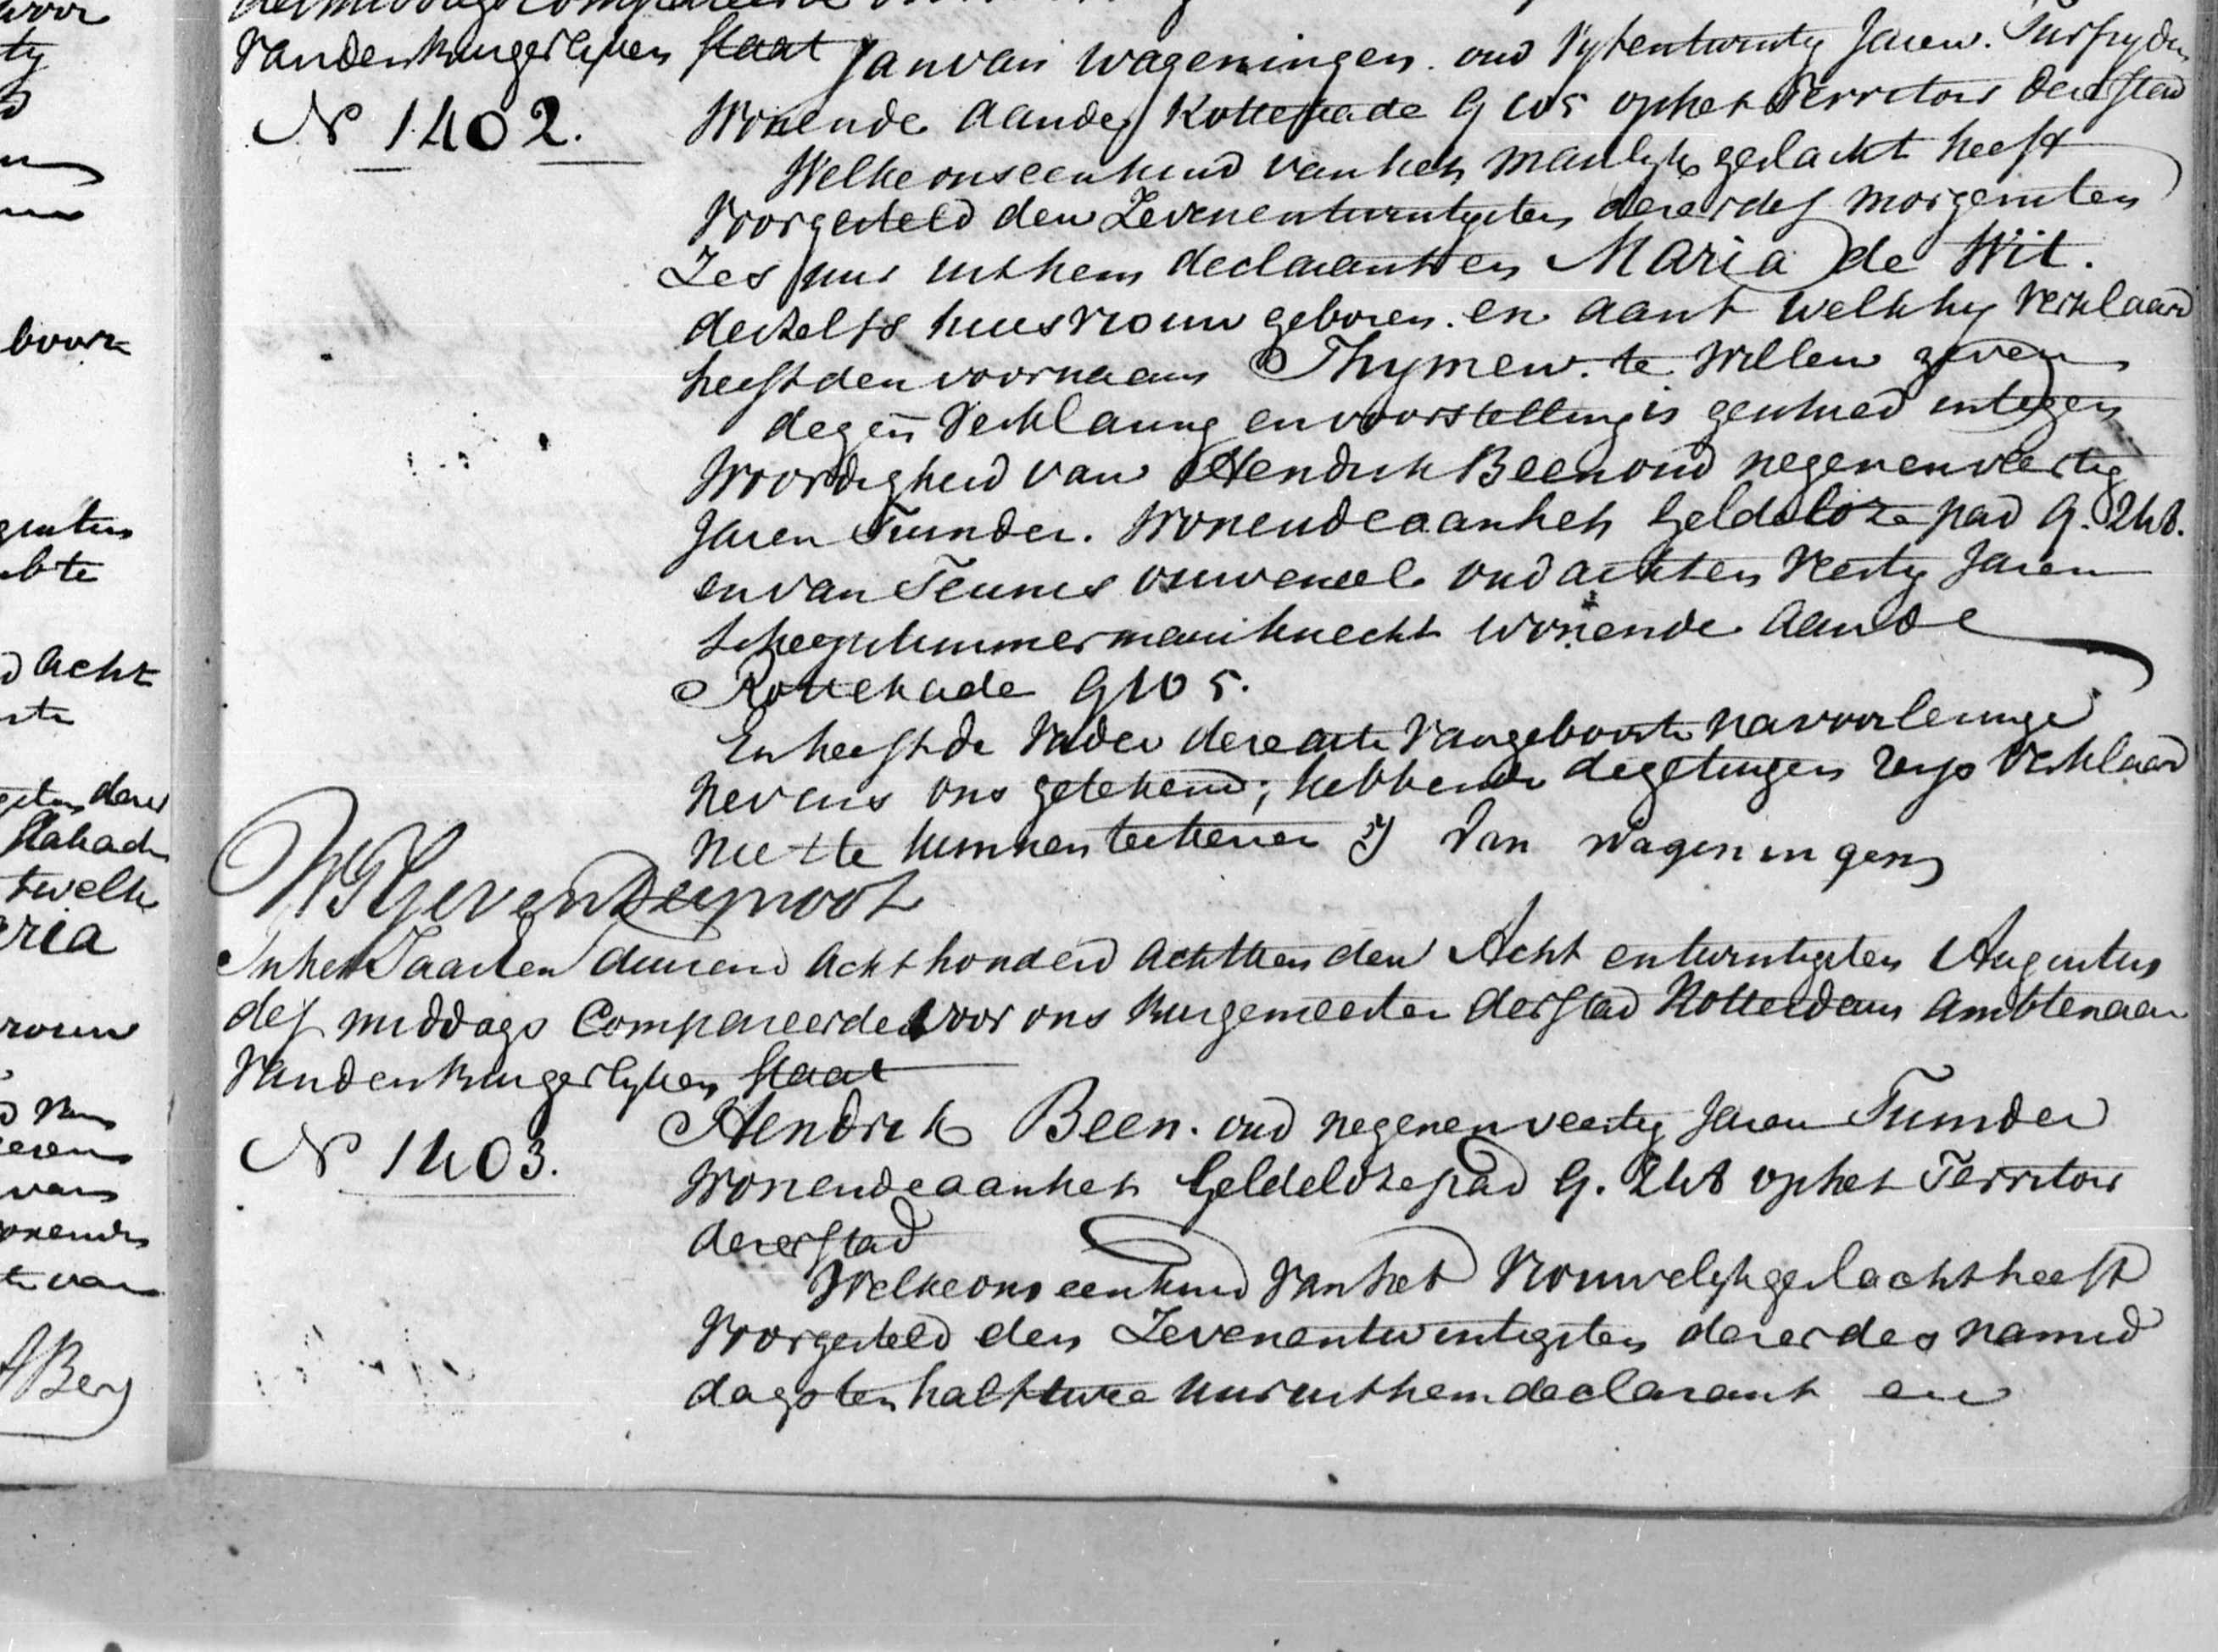 Van den Burgerlyken Staat Jan van Wageningen. oud Vyfentwintig Jaren.
N 1402.
Wonende aande Rottekade G 105 op het Territoir der Stad
Welke ons een kind van het manlyk geslacht heeft
Voorgesteld den Zevenentwintigsten dezer des morgens ten
Zes uur uit hem declarant en Maria de Wit.
deszelfs huisvrouw geboren. en aan t welk hy verklaard
heeft den voornaam Thymen. te willen geven
degen verklaring en voorstelling is geschied in tegen
Woordigheid van Hendrik Been oud negenenveertig
Jaren Tuinder. Wonende aan het Geldeloze pad G. 248.
en van Teunis ouweneel oud achten Veertig Jaren
Scheepstimmermansknecht wonende aan de
Rottekade G 105.
En heeft de Vader deze acte van geboorte na voorlezinge
nevens ons getekend; hebbende de getuigen verklaard
niet te kunnen teekenen J Van Wageningen
In het Jaar een duizend acht honderd achttien den Acht entwintigsten Augustus
des middags Compareerde voor ons Burgemeester der Stad Rotterdam ambtenaar
Van den Burgerlyken Staat
N 1403.
Hendrik Been. oud negenenveertig Jaren Tuinder
Wonende aan het Geldeloze pad G. 248 op het Territoir
dezer Stad
Welke ons een kind van het Vrouwelyk geslacht heeft
Voorgesteld den Zevenentwintigsten dezer des namid
dags ten half twee uur uit hem declarant en
acht
twelk
ria
Berg